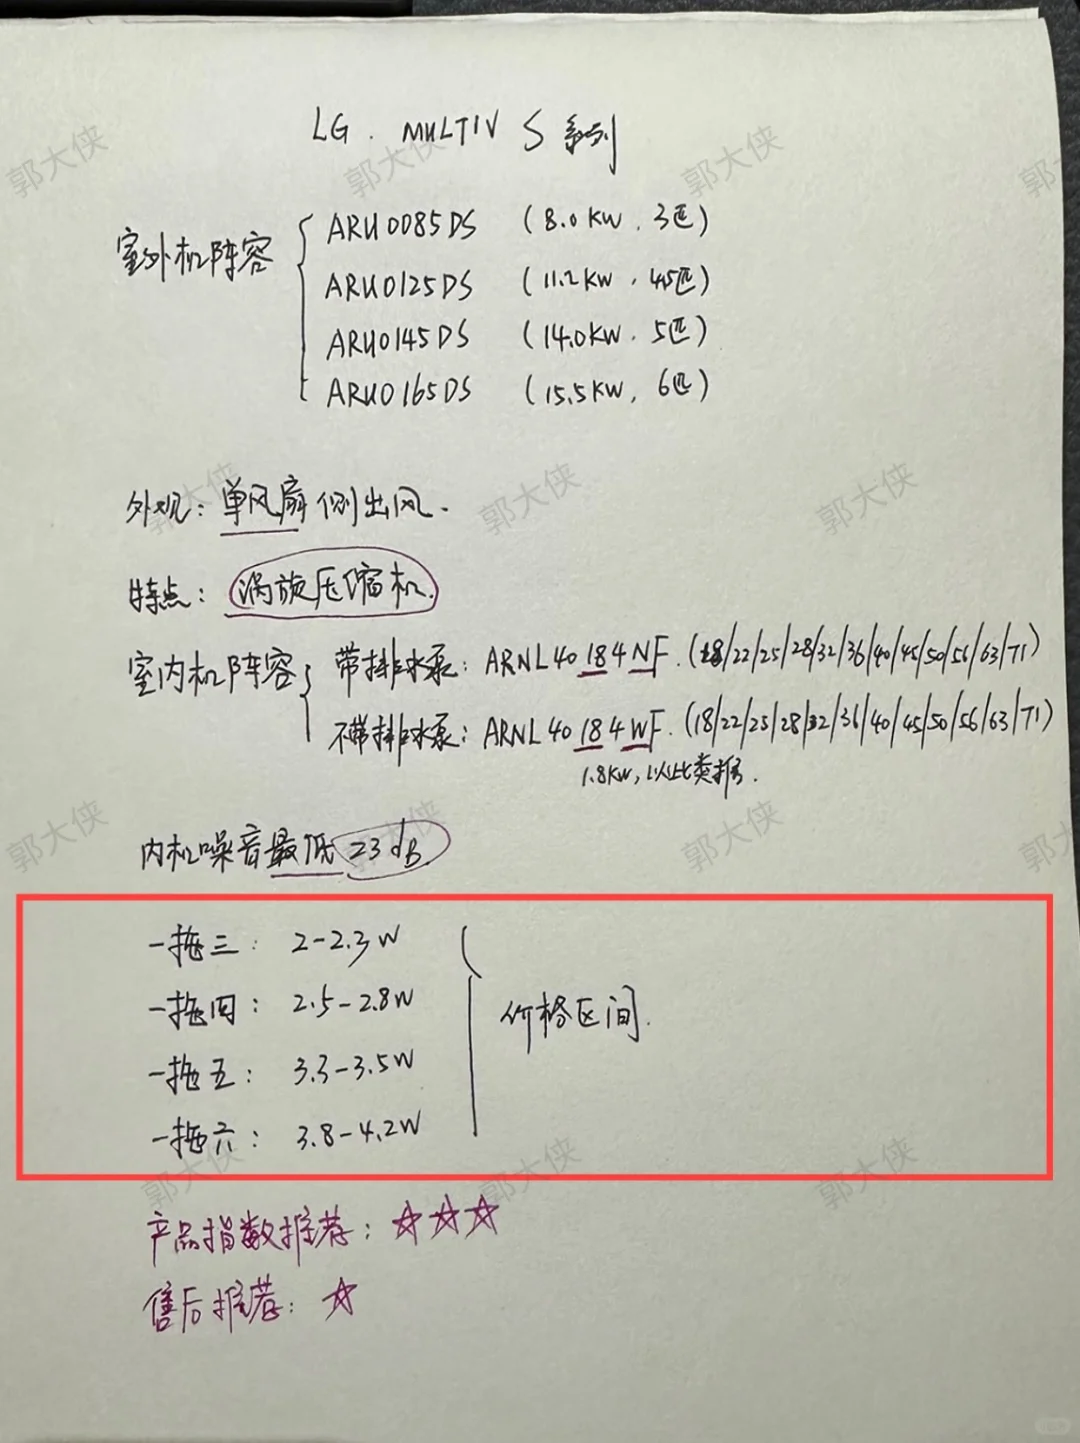 LG. MULTIV S系列
室外机阵容
ARU0085DS (8.0KW, 3匹)
ARU0125DS (11.2KW, 4.5匹)
ARU0145DS (14.0KW, 5匹)
ARU0165DS (15.5KW, 6匹)
外观: 单风扇侧出风.
特点: 涡旋压缩机.
室内机阵容
带排水泵: ARNL40184NF. (18/22/25/28/32/36/40/45/50/56/63/71)
不带排水泵: ARNL40184WF. (18/22/25/28/32/36/40/45/50/56/63/71)
1.8KW, 以此类推.
内机噪音最低23dB
一拖三: 2-2.3W
一拖四: 2.5-2.8W
价格区间.
一拖五: 3.3-3.5W
一拖六: 3.8-4.2W
产品指数推荐: ☆☆☆
售后推荐: ☆
郭大侠
郭大侠
郭大侠
郭大侠
郭大侠
郭大侠
郭大侠
郭大侠
郭大侠
郭大侠
郭大侠
郭大侠
郭大侠